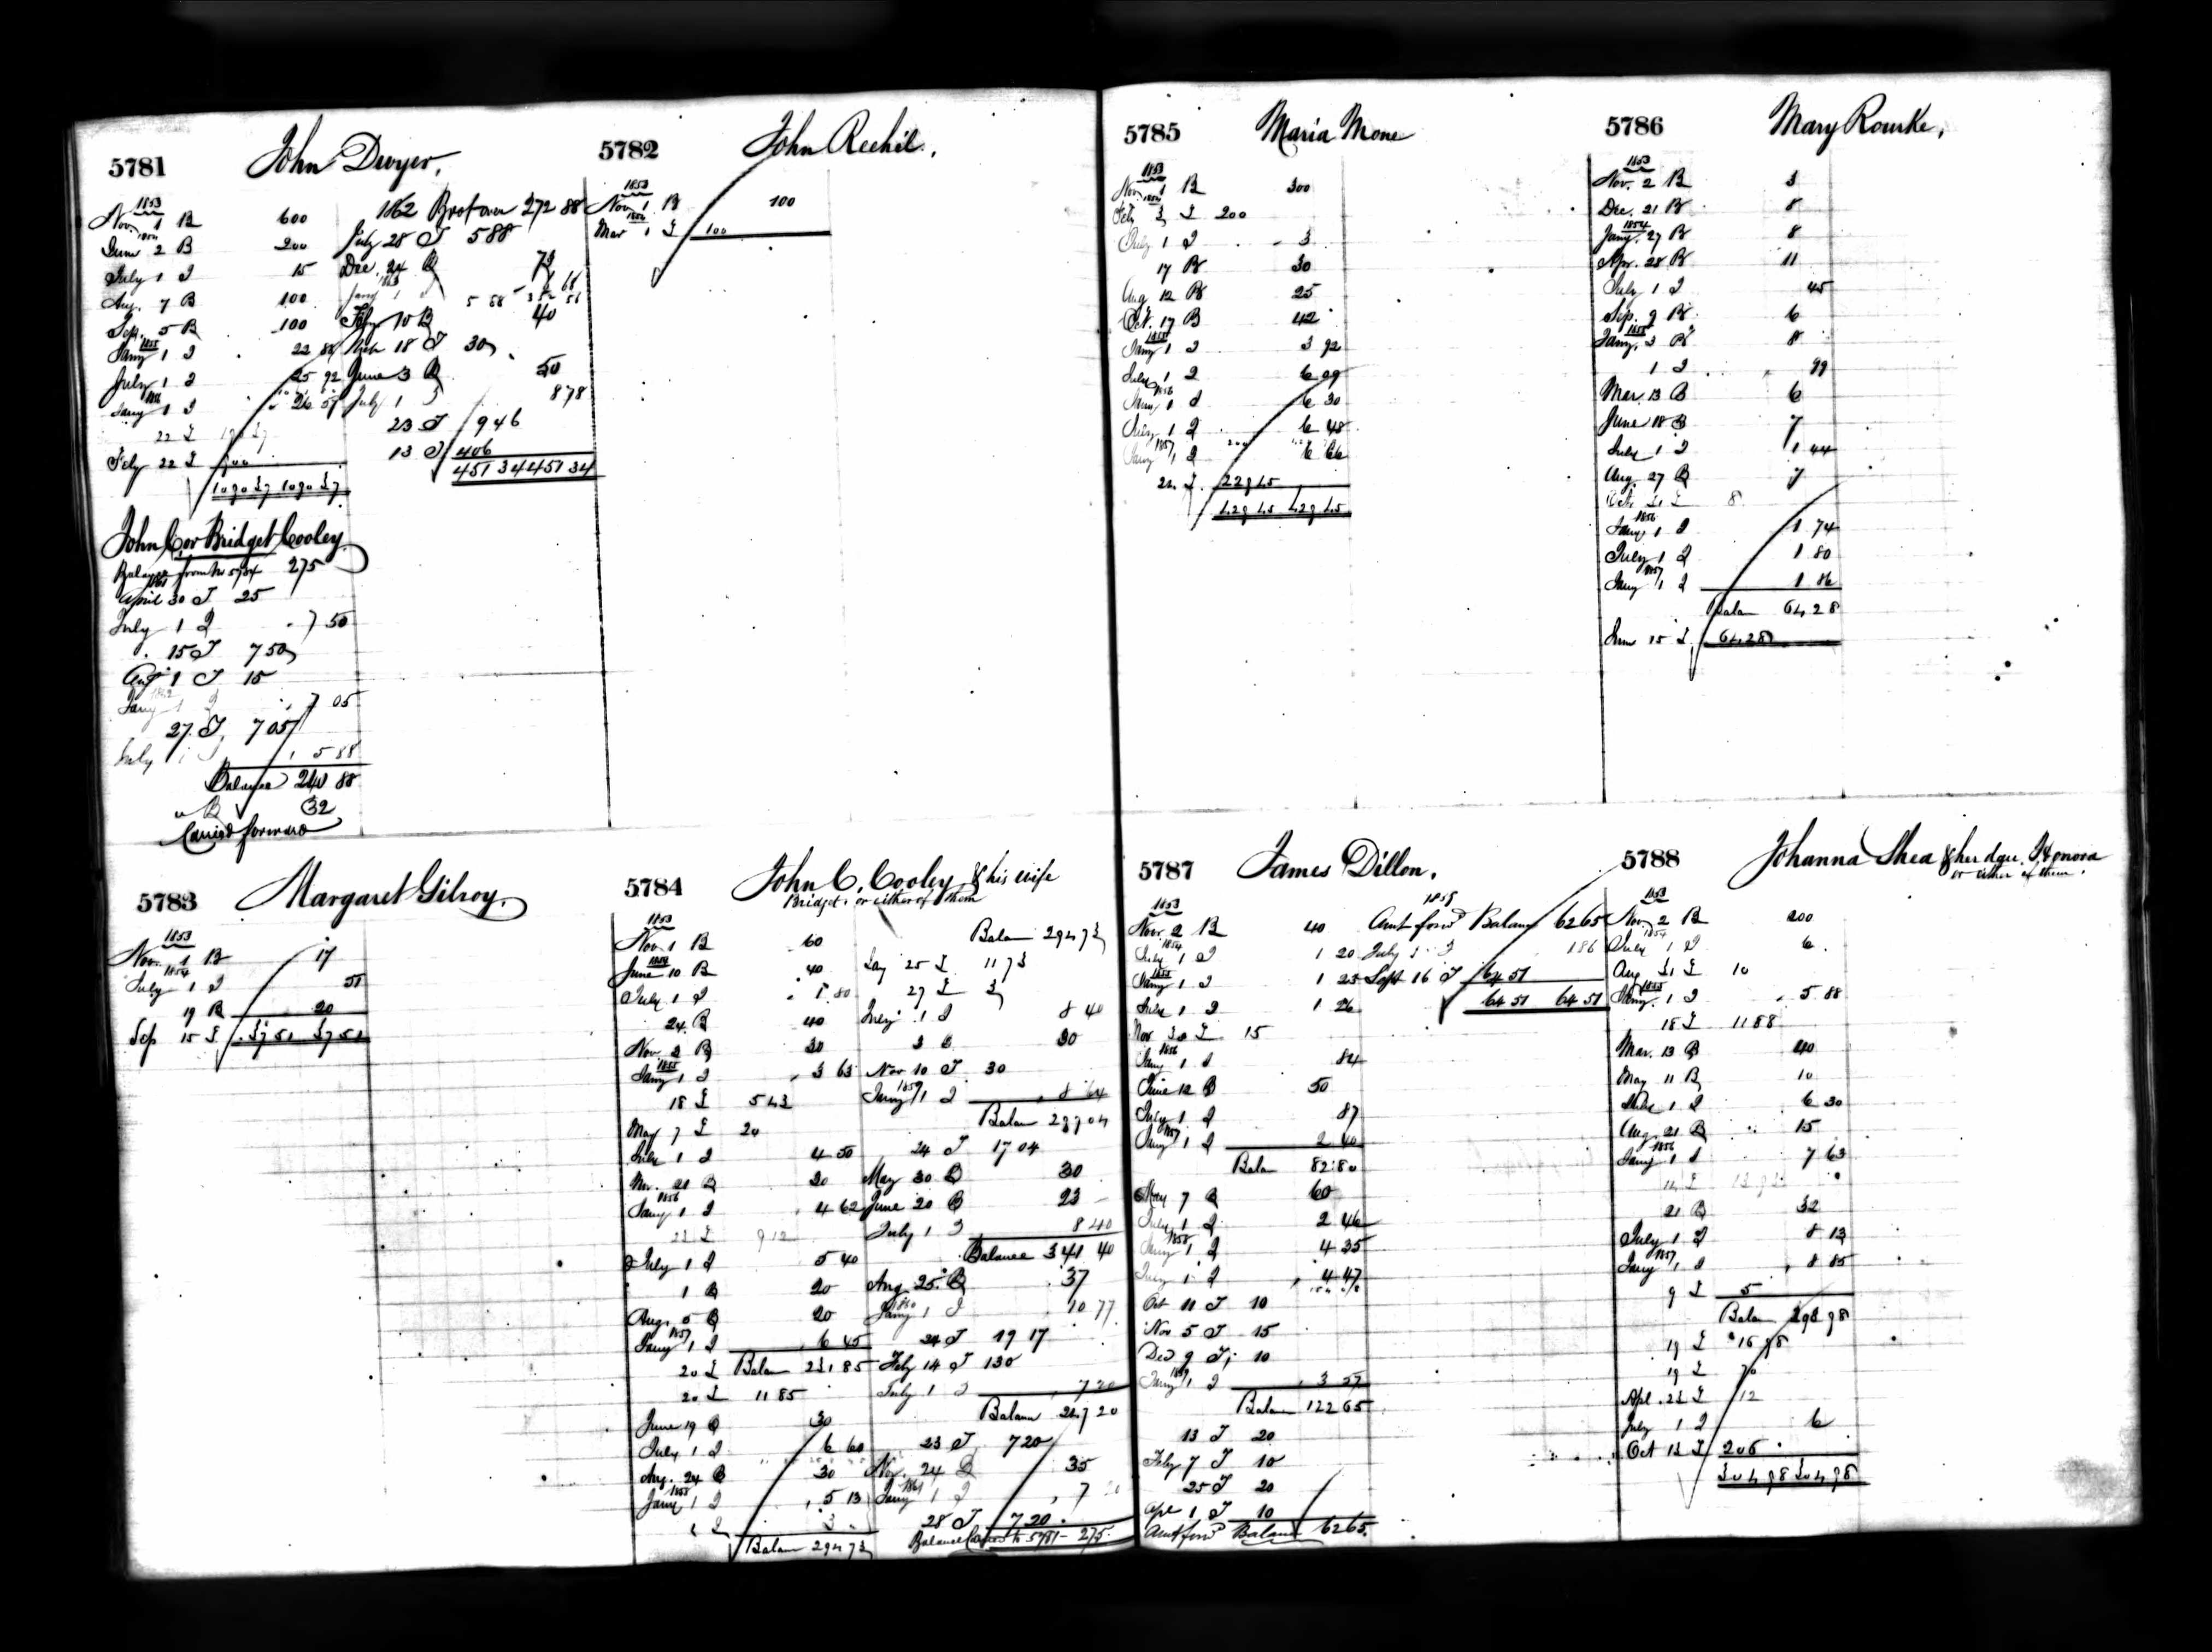 5781 John Dwyer,
1853
Nov. 1 B 600
1854
June 2 B 200
July 1 I 15
Aug. 7 B 100
Sep. 5 B 100
1855
Jany 1 I
July 1 I 25 92
1856
Jany 1 I
22
Feby 22
John C. or Bridget Cooley
Balance from No 5784 275
1861
April 30 T 25
July 1 I 7 50
15 T 7 50
Aug 1 T 15
1862
Jany 1 I 7 05
27 T 7 05
July 1 I 5 88
Balance 240 88
" B 32
Carried forward
1862 Brot over 272 88
July 28 T 5 88
Dec. 24 B 73
1863
Jany 1
Feby 10 B 40
Mch 18 T 30
June 3 B 50
July 1 8 78
23 T 9 46
13 T 406
451 34 451 34
5782 John
1853
Nov. 1 B 100
1854
Mar 1 100
5783 Margaret Gilroy.
1853
Nov. 1 B 17
1854
July 1 I 51
19 B 20
Sep 15 37 51 37 51
5784 John C. Cooley & his wife
Bridget, or either of them
1853
Nov 1 B 60
1854
June 10 B 40
July 1 I 1 80
24 B 40
Nov 2 B 30
1855
Jany 1 I 3 63
18 5 43
May 7 20
July 1 I 4 50
Nov. 21 B 20
1856
Jany 1 I 4 62
22 9 12
July 1 I 5 40
1 B 20
Aug. 5 B 20
1857
Jany 1 I 6 45
20 Balan 231 85
20 11 85
June 19 B 30
July 1 I 6 60
Aug. 24 B 30
1858
Jany 1 I 5 13
Balan 294 73
Balan 294 73
Jany 25 11 73
27 3
July 1 I 8 40
3 B 30
Nov 10 T 30
1859
Jany 1 I 8 64
Balan 297 04
24 T 17 04
May 30 B 30
June 20 B 23
July 1 I 8 40
Balance 341 40
Aug. 25 B 37
1860
Jany 1 I 10 77
24 T 19 17
Feby 14 T 130
July 1 I 7 20
Balan 247 20
23 T 7 20
Nov. 24 B 35
1861
Jany 1 I 7
28 T 7 20
Balance Carried to 5781 - 275
5785 Maria Mone
1853
Nov. 1 B 300
1854
Feby 3 200
July 1 I 3
17 B 30
Aug 12 B 25
Oct. 17 B 42
1855
Jany 1 I 3 92
July 1 I 6 09
1856
Jany 1 I 6 30
July 1 I 6 48
1857
Jany 1 I 6 66
22 229 45
429 45 429 45
5786 Mary Rourke,
1853
Nov. 2 B 3
Dec. 21 B 8
1854
Jany. 27 B 8
Apr. 28 B 11
July 1 I 45
Sep. 9 B 6
1855
Jany. 3 B 8
1 I 99
Mar. 13 B 6
June 18 B 7
July 1 I 1 44
Aug. 27 B 7
Oct. 31 8
1856
Jany 1 I 1 74
July 1 I 1 80
1857
Jany 1 I 1 86
Balan 64 28
June 15 64 28
5787 James Dillon.
1853
Nov 2 B 40
1854
July 1 I 1 20
1855
Jany 1 I 1 23
July 1 I 1 26
Nov 30 15
1856
Jany 1 I 84
June 12 B 50
July 1 I 87
1857
Jany 1 I 2 40
Balan 82 80
May 7 B 60
July 1 I 2 46
1858
Jany 1 I 4 35
July 1 I 4 47
Oct 11 T 10
Nov 5 T 15
Dec 9 T 10
1859
Jany 1 I 3 57
Balan 122 65
13 T 20
Feby 7 T 10
25 T 20
Apl 1 T 10
Amt forwd Balance 62 65
1859
Amt forwd Balance 62 65
July 1 I 1 86
Sept 16 T 64 51
64 51 64 51
5788 Johanna Shea & her dau. Honora
or either of them.
1853
Nov. 2 B 200
1854
July 1 I 6
Aug 31 10
1855
Jany. 1 I 5 88
18 11 88
Mar. 13 B 40
May 11 B 10
July 1 I 6 30
Aug. 21 B 15
1856
Jany 1 I 7 63
21 B 32
July 1 I 8 13
1857
Jany 1 I 8 85
9 5
Balan 298 98
19 16 98
19 70
Apl. 23 12
July 1 I 6
Oct 13 206
304 98 304 98